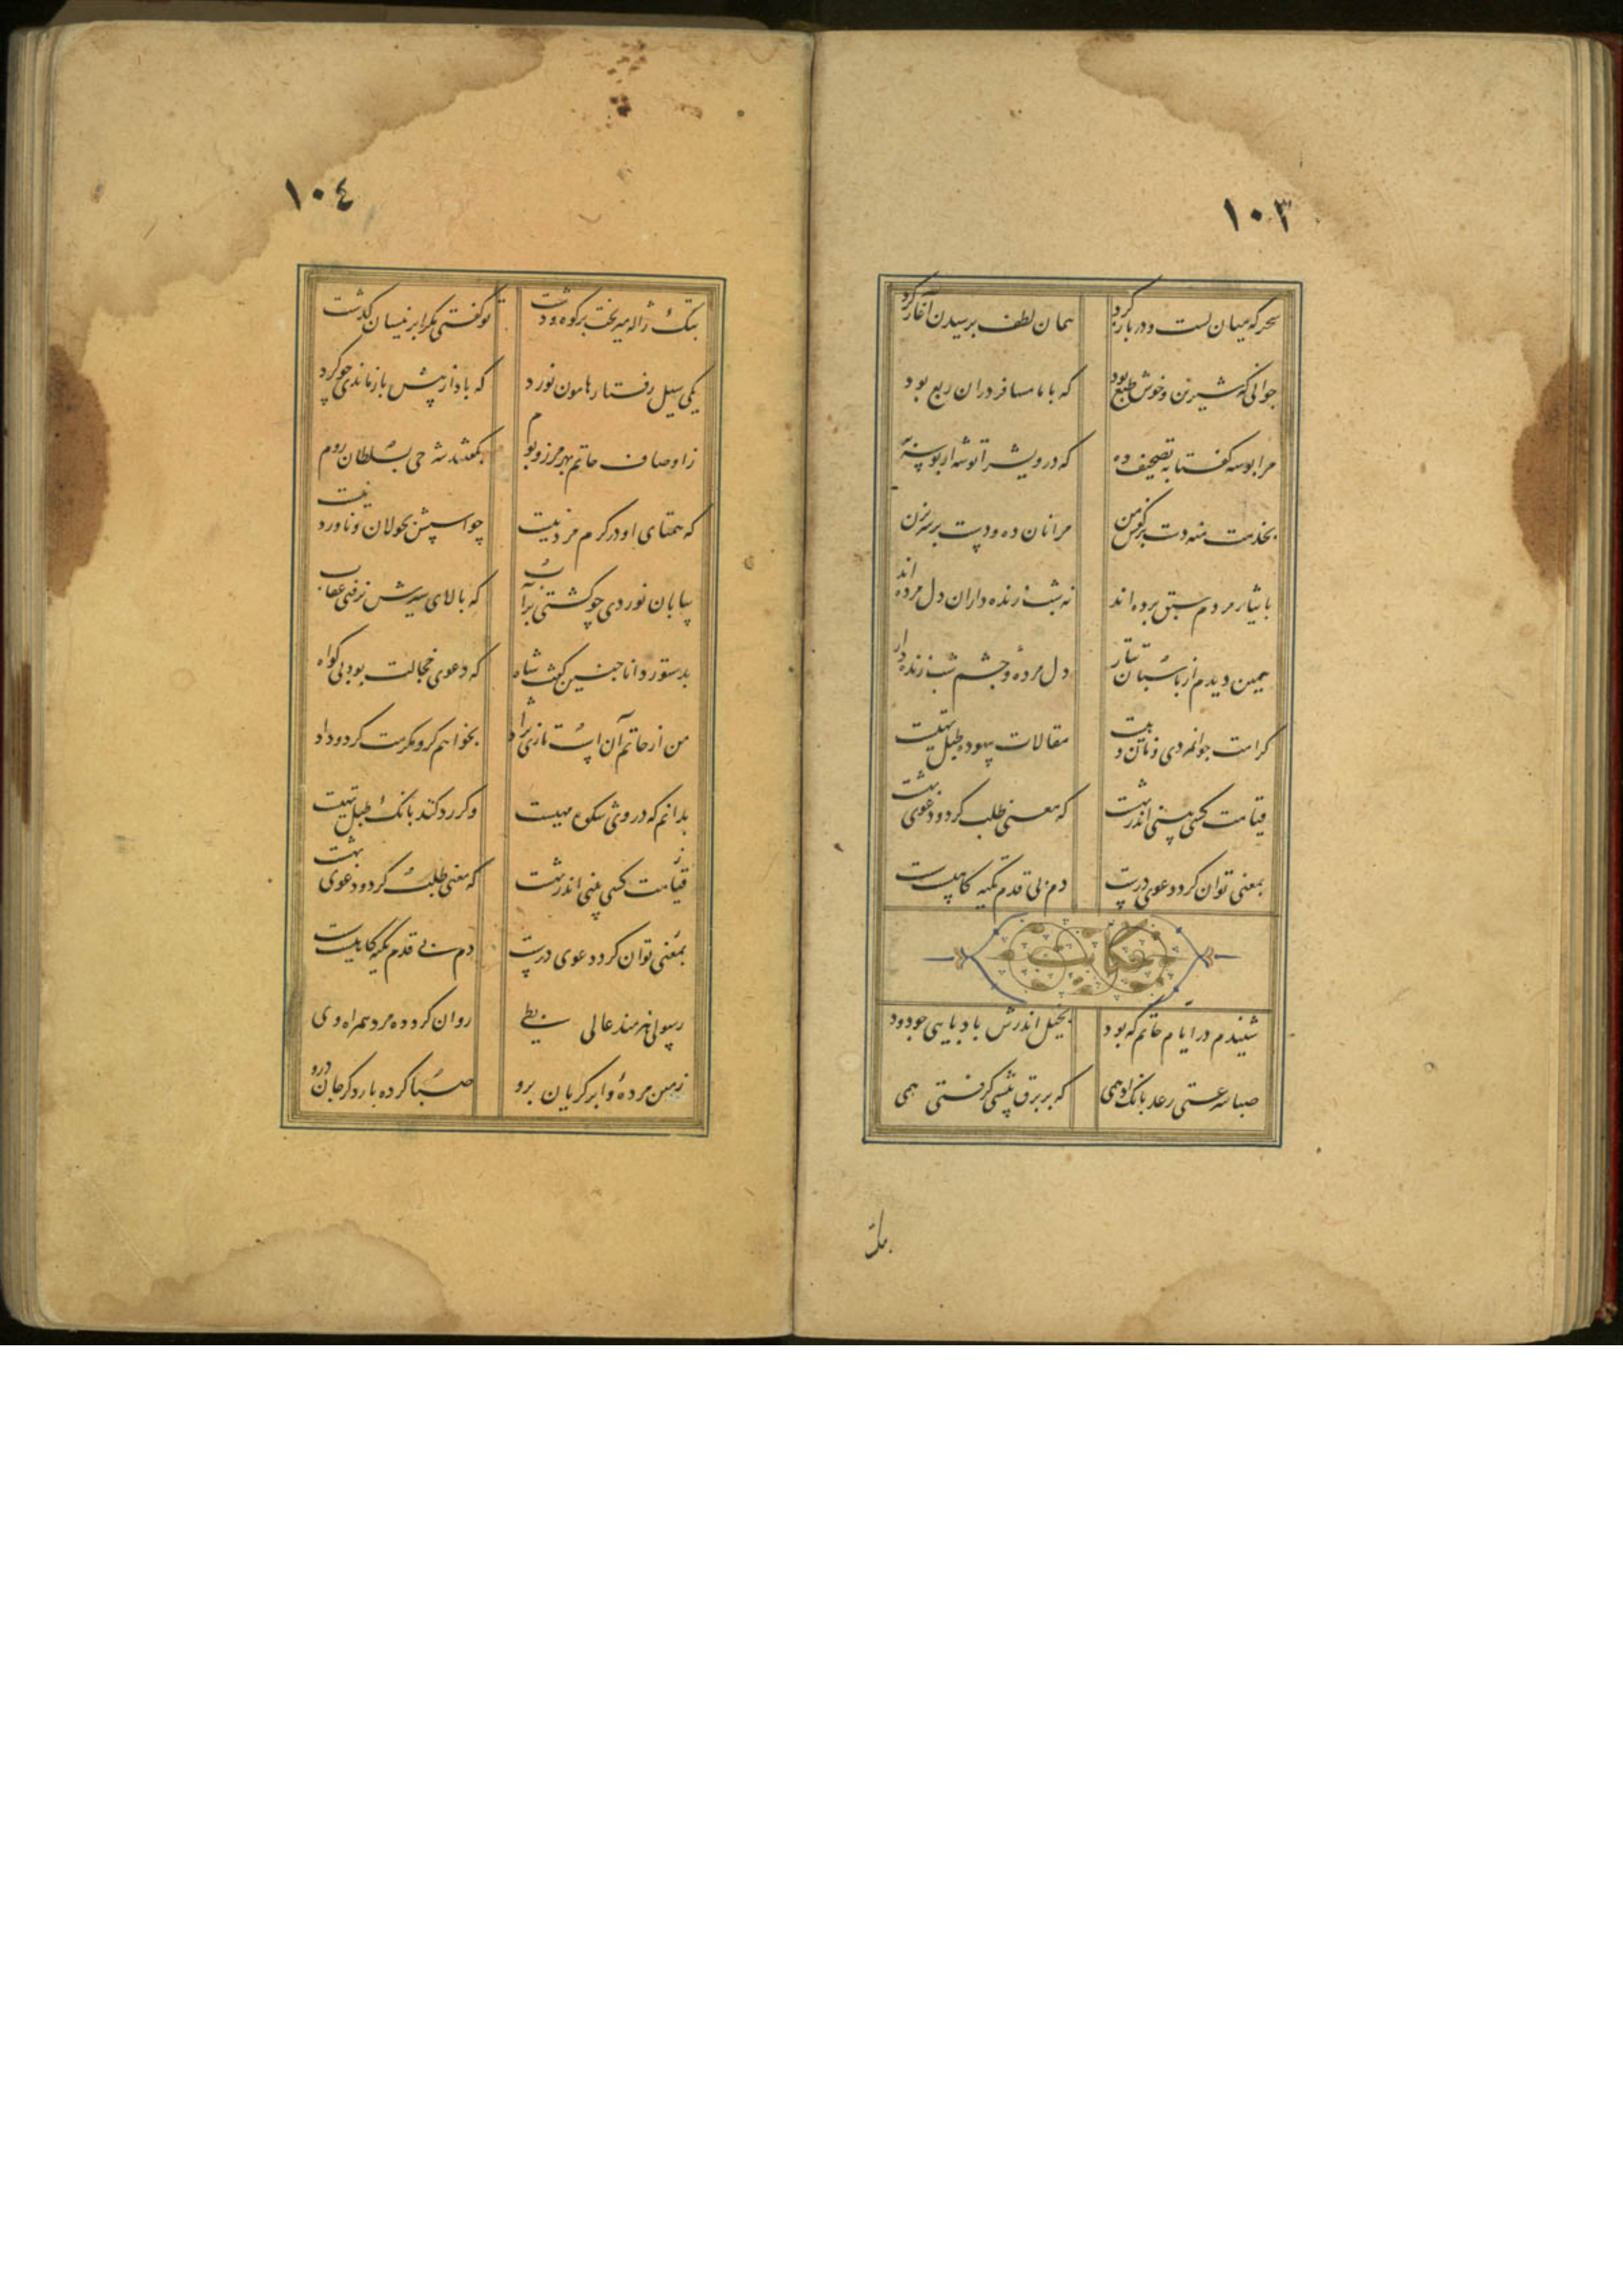 ١٠٣
سحرکه میان بست و در باز کرد همان لطف پرسیدن آغاز کرد
جوانی که شیرین و خوش طبع بود که با ما مسافر در ان ربع بود
مرا بوسه کفتا به تصحیف ده که درویش را توشه از بوسه به
بخدمت منه دست بر کفش من مرا نان ده و دست بر سر بزن
بایثار مردم سبق برده اند نه شب زنده داران دل مرده اند
همین دیدم از پاسبان تتار دل مرده و چشم شب زنده دار
کرامت جوانمردی و نان دهیست مقالات بیهوده طبل تهیست
قیامت کسی بینی اندر بهشت که معنی طلب کرد و دعوی بهشت
بمعنی توان کرد دعوی درست دم بی قدم تکیه کاهیست سست
حکایت
شنیدم در ایام حاتم که بود بخیل اندرش بادپایی چو دود
صبا سرعتی رعد بانک ادهمی که بر برق پیشی کرفتی همی
بتک
١٠٤
بتک ژاله میریخت بر کوه و دشت تو کفتی مکر ابر نیسان کذشت
یکی سیل رفتار هامون نورد که باد از پیش باز ماندی چو کرد
ز اوصاف حاتم بهر مرز و بوم بکفتند شه حی بسلطان روم
که همتای او در کرم مرد نیست چو اسپش بجولان و ناورد نیست
بیابان نوردی چو کشتی بر آب که بالای سیرش نرفتی عقاب
بدستور دانا چنین کفت شاه که دعوی خجالت بود بی کواه
من از حاتم آن اسب تازی نژاد بخواهم کر و مکرمت کرد و داد
بدانم که در وی شکوه مهیست و کر رد کند بانک طبل تهیست
قیامت کسی بینی اندر بهشت که معنی طلب کرد و دعوی بهشت
بمعنی توان کرد دعوی درست دم بی قدم تکیه کاهیست سست
رسولی هنرمند عالی بطی روان کرد و ده مرد همراه وی
زمین مرده و ابر کریان برو صبا کرده بار دکر جان درو